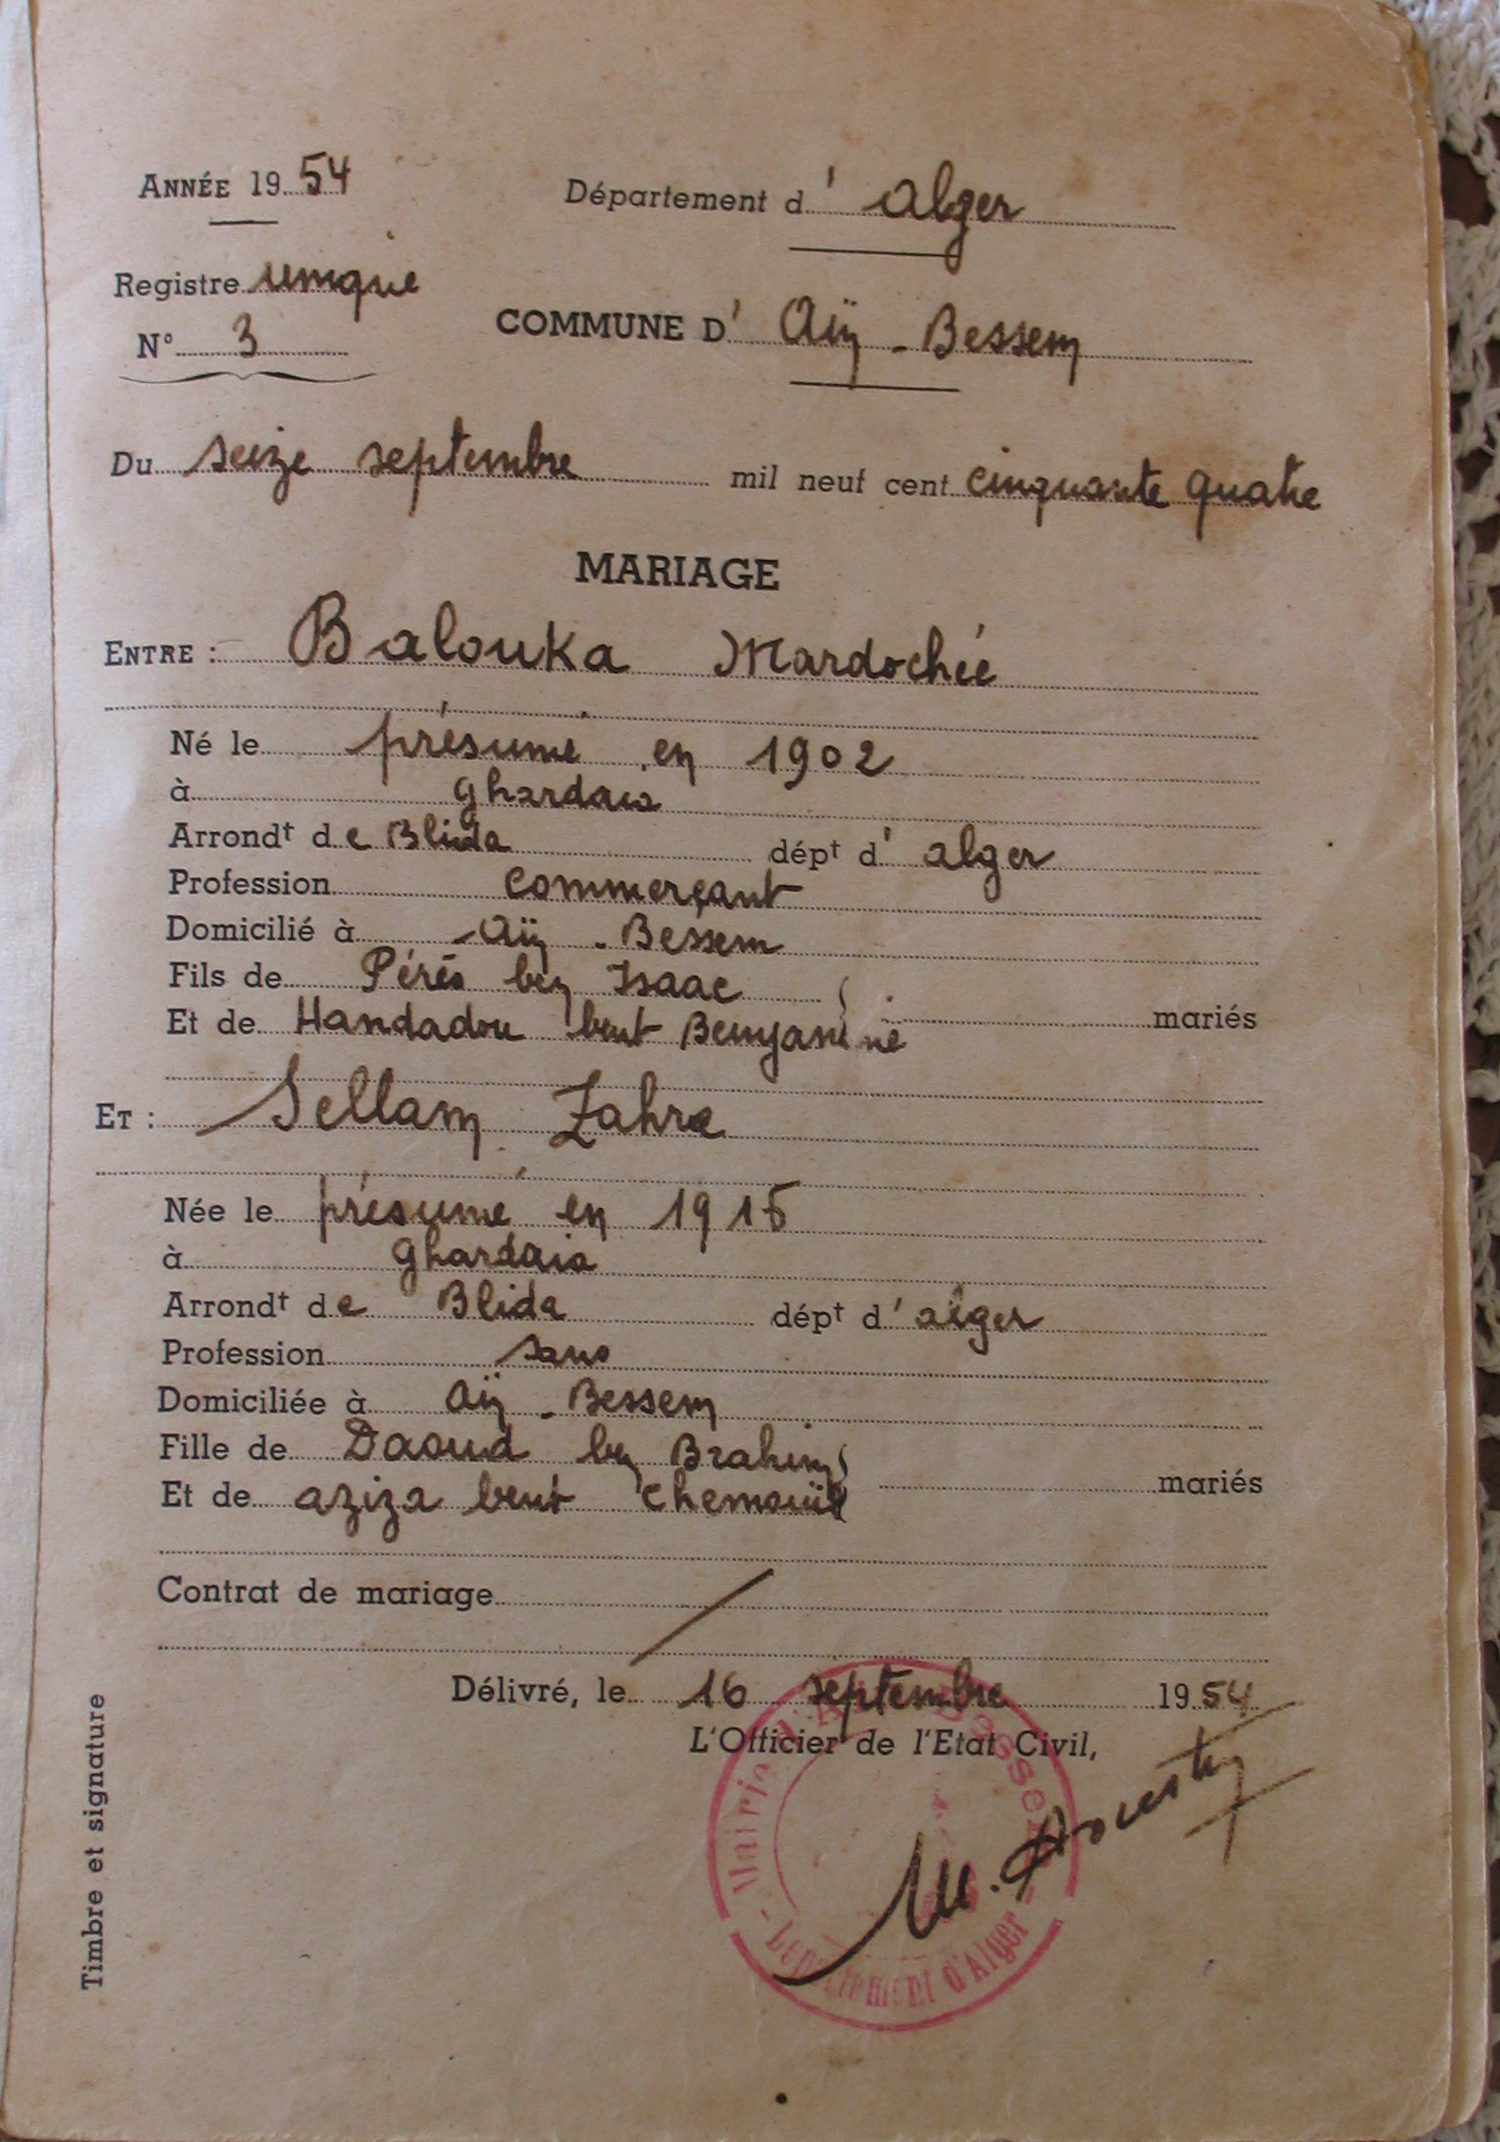 ANNÉE 1954
Département d'Alger
Registre unique
N° 3
COMMUNE D'Aïn-Bessem
Du seize septembre mil neuf cent cinquante quatre
MARIAGE
ENTRE : Balouka Mardochée
Né le présumé en 1902
à Ghardaia
Arrondt de Blida dépt d'alger
Profession commerçant
Domicilié à Aïn-Bessem
Fils de Pérès ben Isaac
Et de Handadou bent Benyamine mariés
ET : Sellam Zahra
Née le présumé en 1915
à Ghardaia
Arrondt de Blida dépt d'alger
Profession sans
Domiciliée à Aïn-Bessem
Fille de Daoud ben Brahim
Et de aziza bent Chemouïl mariés
Contrat de mariage /
Délivré, le 16 septembre 1954
L'Officier de l'Etat Civil,
Mairie d'Aïn-Bessem
- Département d'Alger -
Timbre et signature